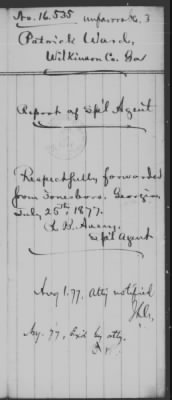 No. 16.535
Patrick Ward,
Wilkinson Co. Ga
Report of Spl Agent
Respectfully forwarded
from Jonesboro, Georgia,
July 25th, 1877.
Spl Agent
Aug 1. 77. Atty notified
Aug. 77, by atty.